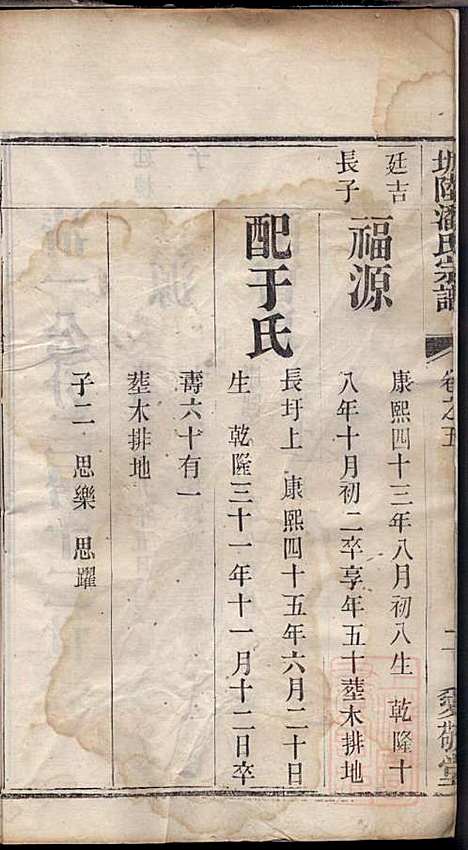 潘氏宗譜 卷之五 二 愛敬堂
廷吉
長子
福源
康熙四十三年八月初八生 乾隆十
八年十月初二卒享年五十塟木排地
配于氏
長圩上 康熙四十五年六月二十日
生 乾隆三十一年十一月十二日卒
壽六十有一
塟木排地
子二 思樂 思躍